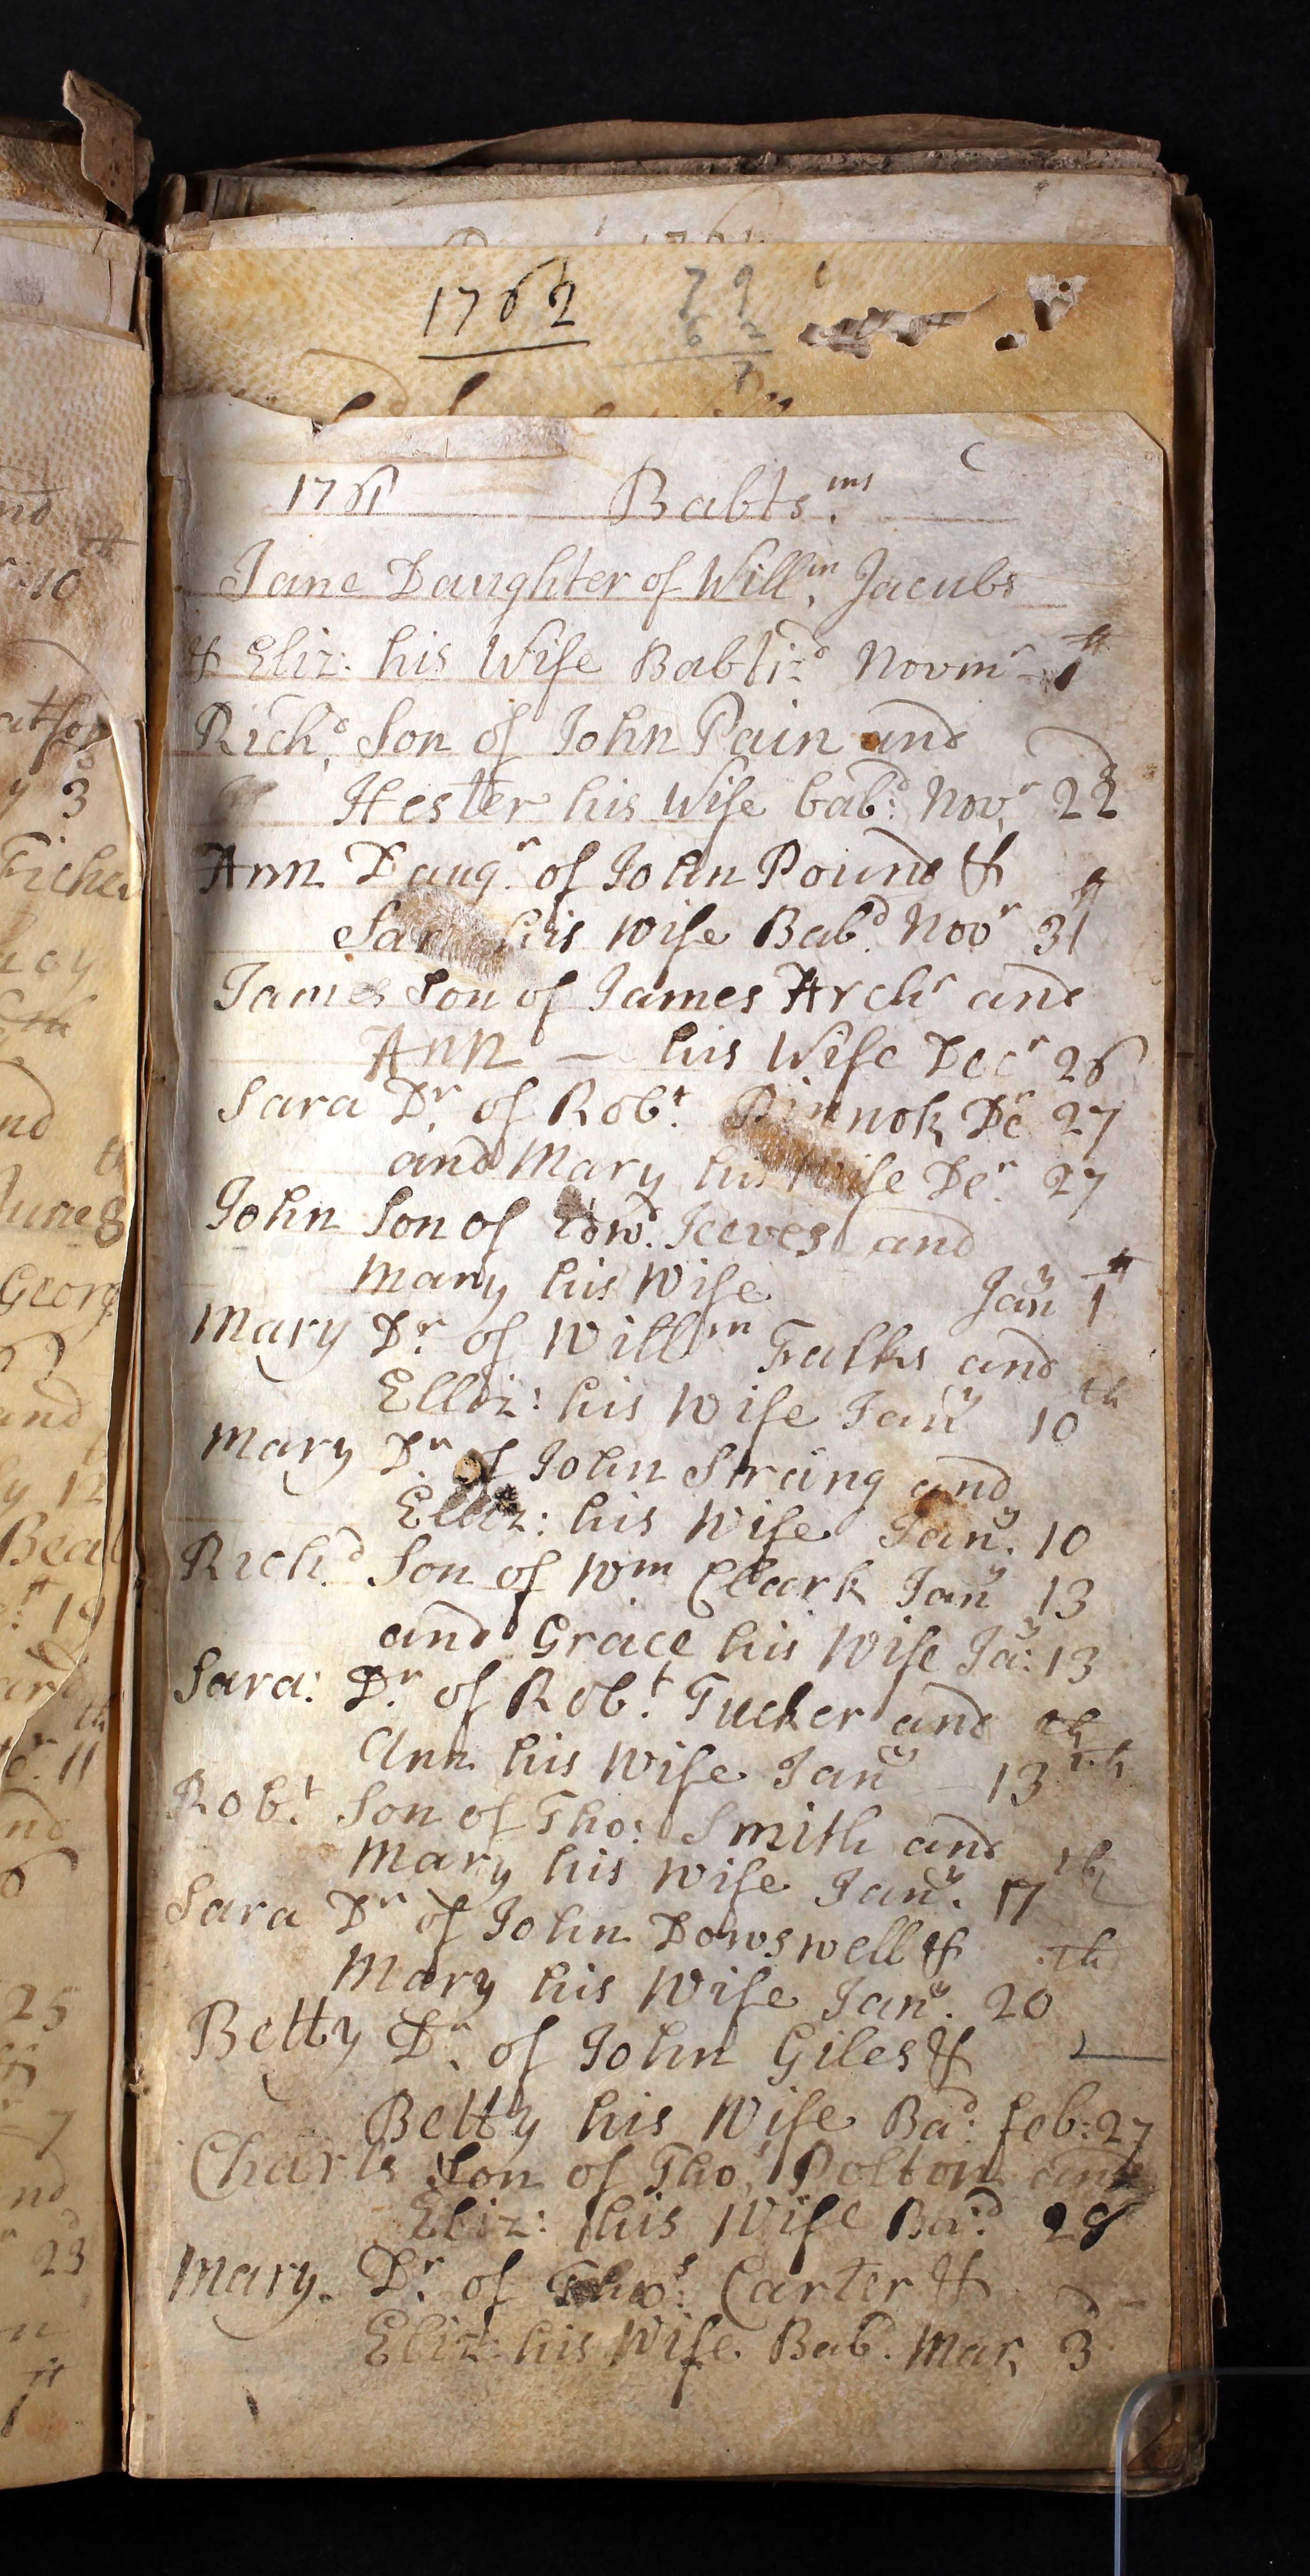 1762 79
62
7
1761 Babts.ms
Jane Daughter of Will.m Jacubs
& Eliz: his Wife Babtiz.d Novmr 1st
Rich.d Son of John Pain and
Hester his Wife bab:d Nov.r 22d
Ann Daug.r of John Pound &
Sar his wife Bab.d Novr 31st
James Son of James Archr and
Ann — his Wife Decr 26
Sara D.r of Rob.t Pinnok Dec 27
and Mary his Wife De.r 27
John Son of Edw.d Jeeves and
Mary his Wife Jany 1st
Mary D.r of Willm Falks and
Elliz: his Wife Jany 10th
Mary D.r of John Strang and
Elliz: his Wife Jan.y 10
Rich.d Son of Wm Clark Jany 13
and Grace his Wife Ja:y 13
Sara: D.r of Rob.t Tucker and
Ann his Wife Jany – 13th
Rob.t Son of Tho: Smith and
Mary his wife Jan.y 17th
Sara Dr of John Dowswell & th
Mary his Wife Jan.y 20
Betty D.r of John Giles &
Betty his Wife Ba:d feb: 27
Charls Son of Tho.s Polton and
Eliz: his Wife Ba:d 28
Mary. D.r of Tho:s Carter &
Eliz: his Wife Bab. Mar, 3d